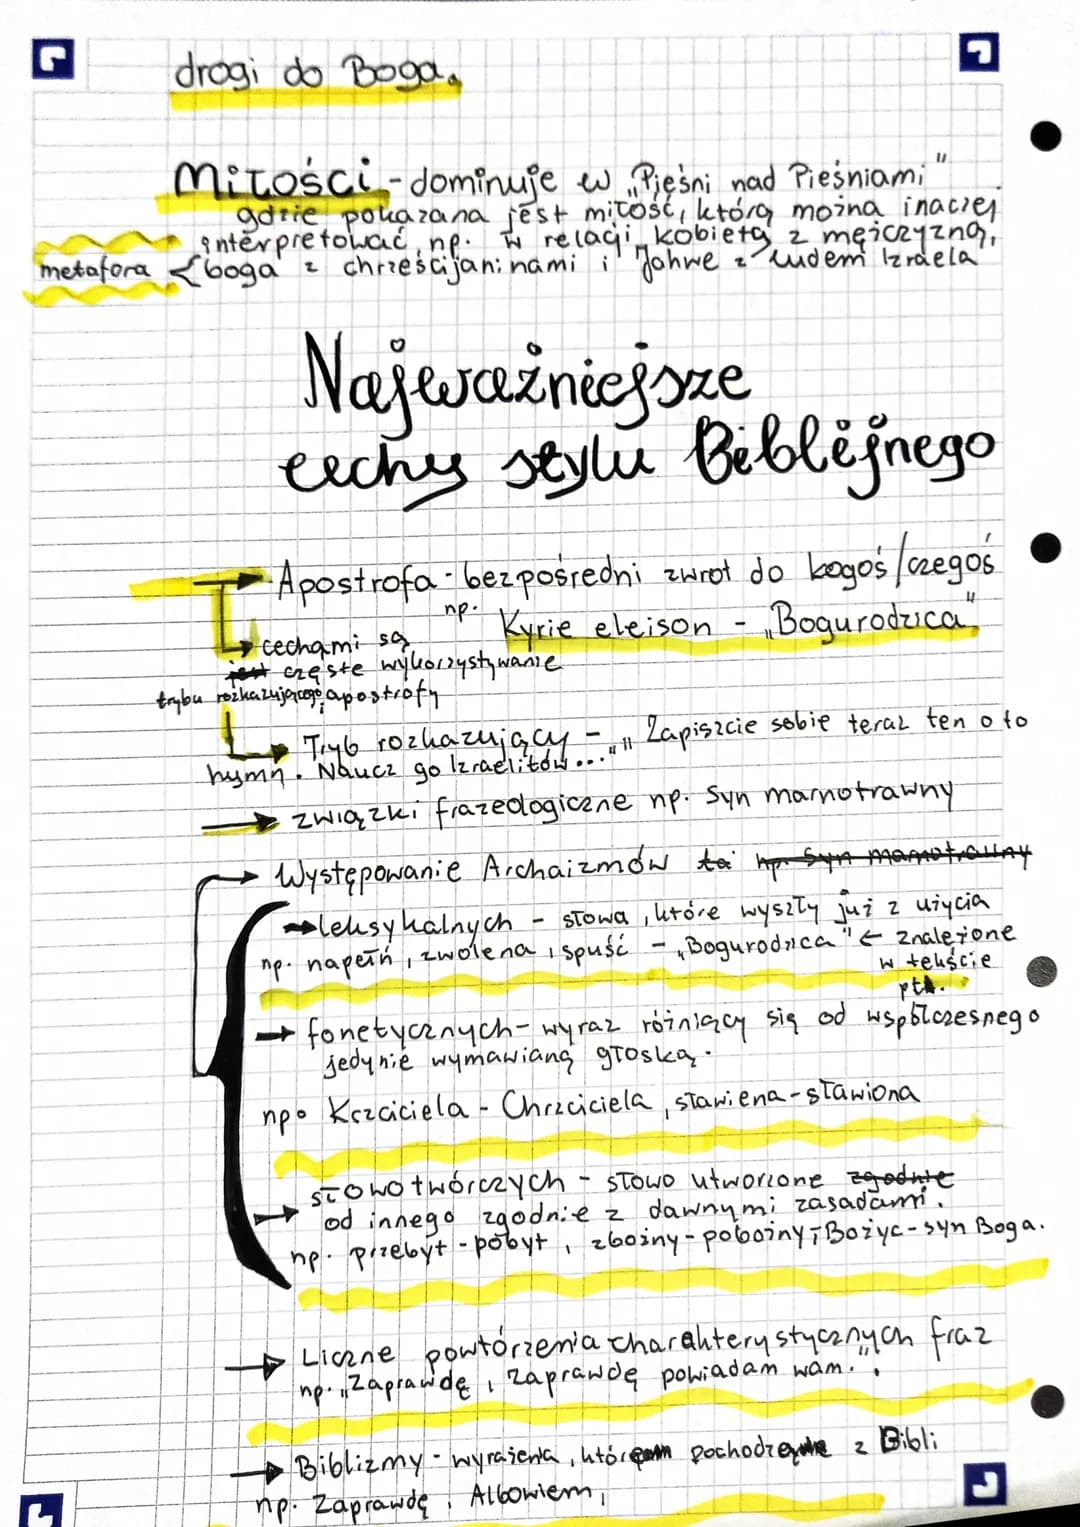 drogi do Boga.
Miłości - dominuje w „Pieśni nad Pieśniami"
gdzie pokazana jest miłość, którą można inaczej
interpretować, np. w relacji kobietą z mężczyzną,
metafora { boga z chrześcijaninami i Jahwe z ludem Izraela
Najważniejsze
cechy stylu Biblijnego
→ Apostrofa - bezpośredni zwrot do kogoś/czegoś
np. Kyrie eleison - „Bogurodzica"
→ cechami są
jest częste wykorzystywanie
trybu rozkazującego, apostrofy
→ Tryb rozkazujący - „" Zapiszcie sobie teraz ten oto
hymn. Naucz go Izraelitów..."
→ związki frazeologiczne np. Syn marnotrawny
→ Występowanie Archaizmów np. Syn marnotrawny
→ leksykalnych - słowa, które wyszły już z użycia
np. napełń, zwolena, spuść - „Bogurodzica" ← znalezione
w tekście
ptk.
→ fonetycznych - wyraz różniący się od współczesnego
jedynie wymawianą głoską.
np. Krzciciela - Chrzciciela, sławiena - sławiona
→ słowotwórczych - słowo utworzone zgodnie
od innego zgodnie z dawnymi zasadami.
np. przebyt - pobyt, zbożny - pobożny, Bożyc - syn Boga.
→ Liczne powtórzenia charakterystycznych fraz
np. „Zaprawdę, zaprawdę powiadam wam.".
→ Biblizmy - wyrażenia, które pochodzą z Bibli
np. Zaprawdę, Albowiem,